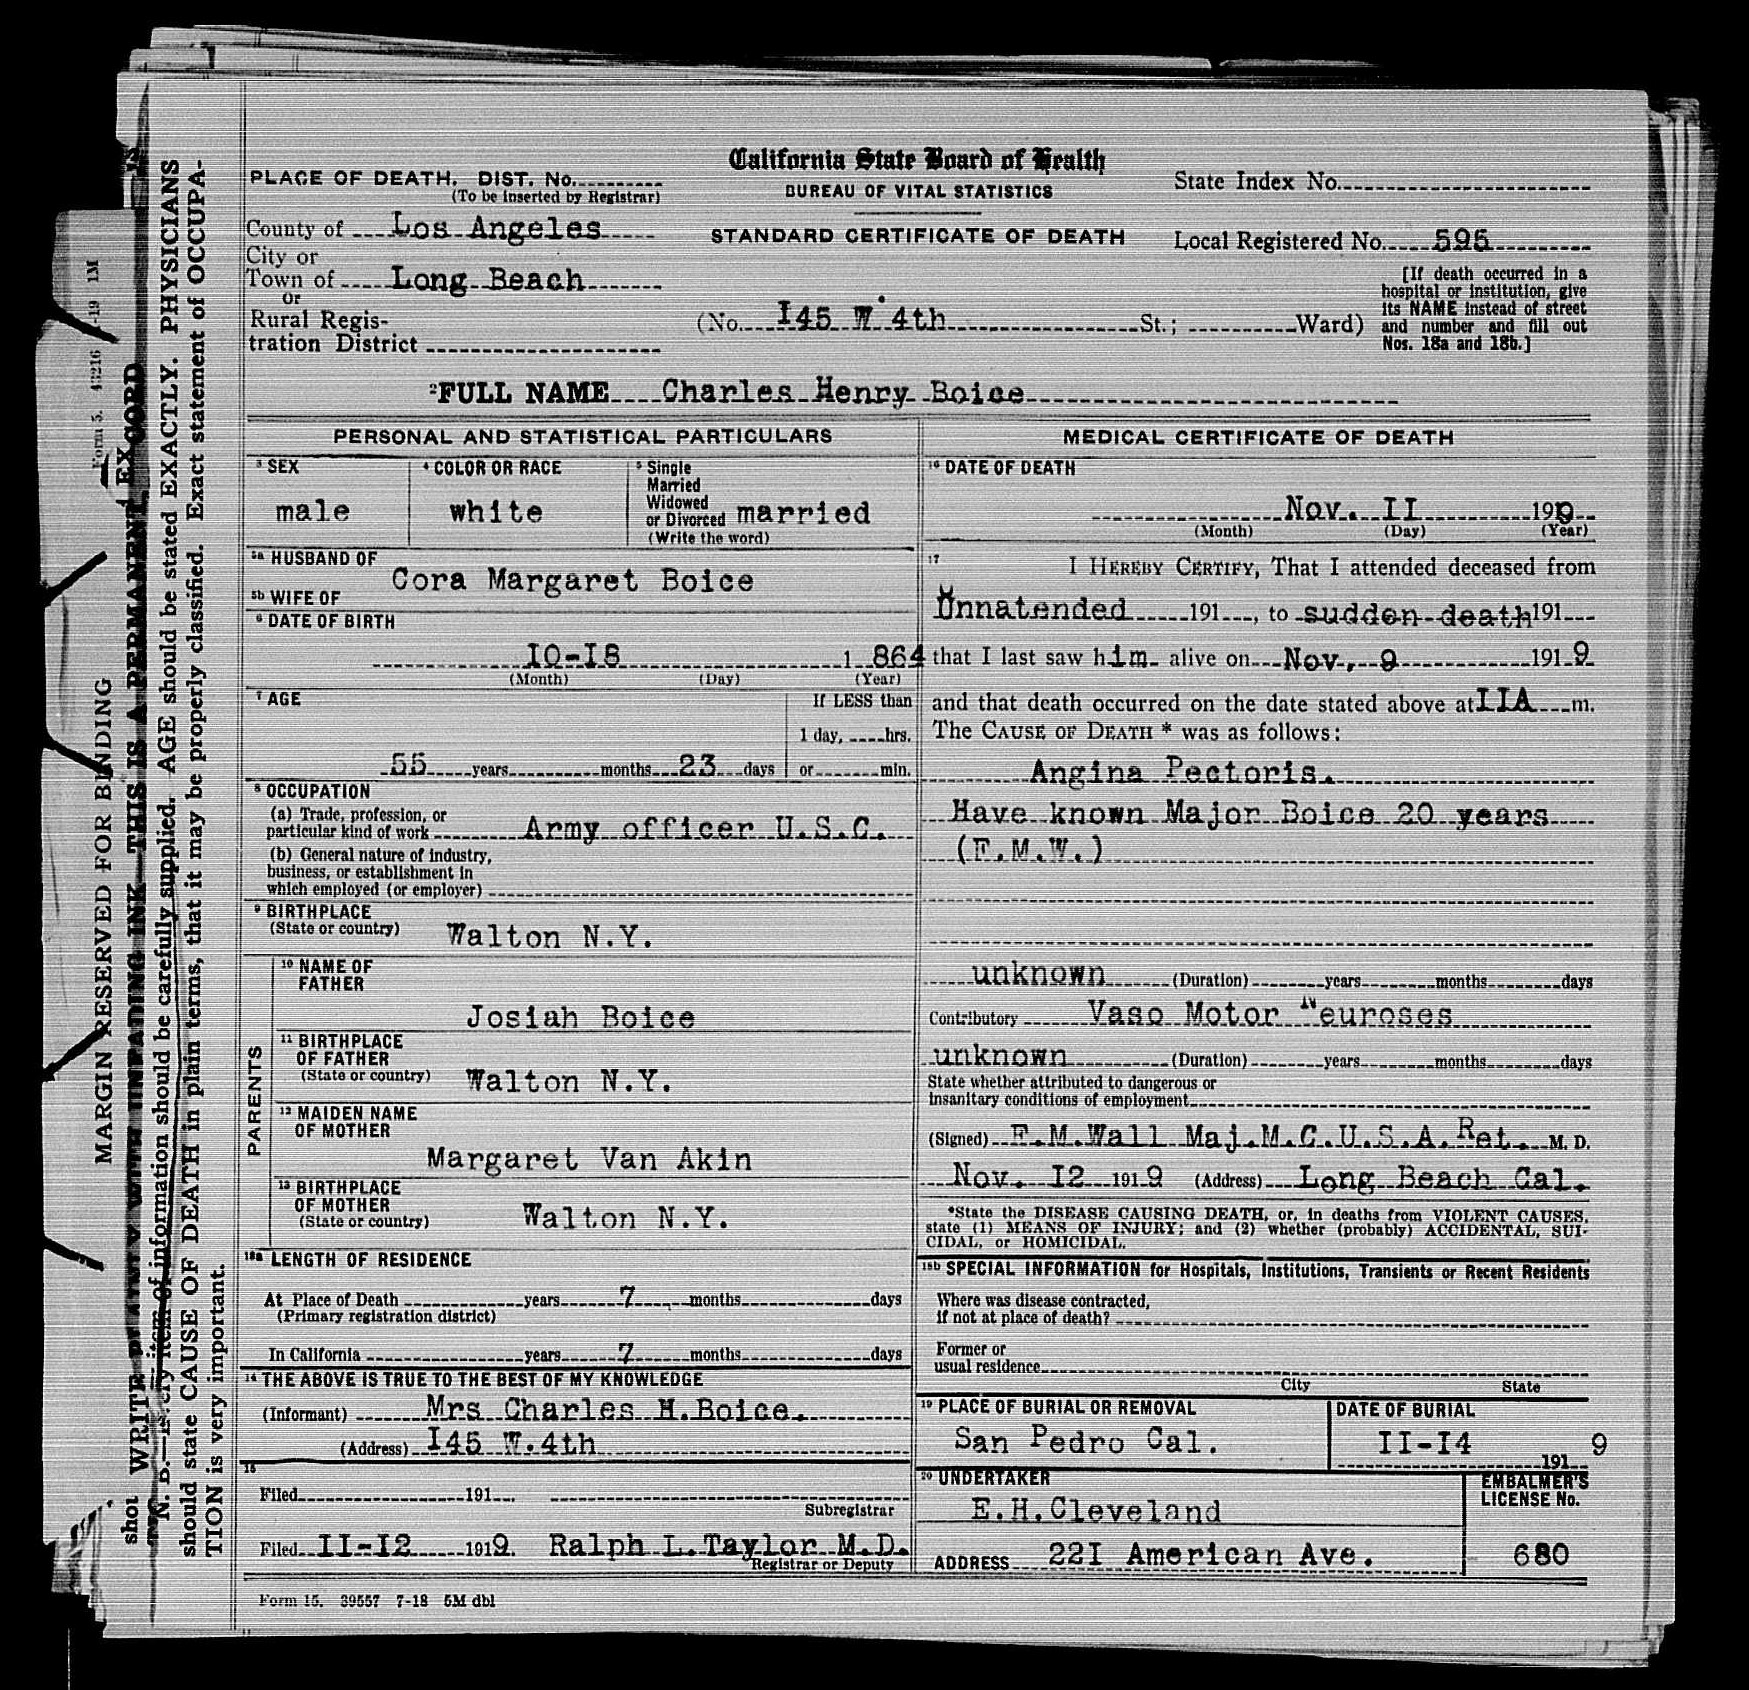 California State Board of Health
BUREAU OF VITAL STATISTICS
STANDARD CERTIFICATE OF DEATH
PLACE OF DEATH, DIST. No.
(To be inserted by Registrar)
County of Los Angeles
City or
Town of Long Beach
or
Rural Regis-
tration District
State Index No.
Local Registered No. 595
[If death occurred in a
hospital or institution, give
its NAME instead of street
and number and fill out
Nos. 18a and 18b.]
(No. I45 W 4th St.; Ward)
2 FULL NAME Charles Henry Boice
PERSONAL AND STATISTICAL PARTICULARS
3 SEX
male
4 COLOR OR RACE
white
5 Single
Married
Widowed
or Divorced married
(Write the word)
5a HUSBAND OF
Cora Margaret Boice
5b WIFE OF
6 DATE OF BIRTH
IO-I8 1 864
(Month) (Day) (Year)
7 AGE
If LESS than
1 day, hrs.
55 years months 23 days or min.
8 OCCUPATION
(a) Trade, profession, or
particular kind of work Army officer U.S.C.
(b) General nature of industry,
business, or establishment in
which employed (or employer)
9 BIRTHPLACE
(State or country) Walton N.Y.
PARENTS
10 NAME OF
FATHER
Josiah Boice
11 BIRTHPLACE
OF FATHER
(State or country) Walton N.Y.
12 MAIDEN NAME
OF MOTHER
Margaret Van Akin
13 BIRTHPLACE
OF MOTHER
(State or country) Walton N.Y.
18a LENGTH OF RESIDENCE
At Place of Death years 7 months days
(Primary registration district)
In California years 7 months days
14 THE ABOVE IS TRUE TO THE BEST OF MY KNOWLEDGE
(Informant) Mrs Charles H.Boice.
(Address) I45 W.4th
15
Filed 191
Subregistrar
Filed II-I2 1919. Ralph L.Taylor M.D.
Registrar or Deputy
Form 15. 39557 7-18 5M dbl
MEDICAL CERTIFICATE OF DEATH
16 DATE OF DEATH
Nov. II 1919
(Month) (Day) (Year)
17 I HEREBY CERTIFY, That I attended deceased from
Unnatended 191 , to sudden death 191
that I last saw him alive on Nov. 9 1919
and that death occurred on the date stated above at IIA m.
The CAUSE OF DEATH * was as follows:
Angina Pectoris.
Have known Major Boice 20 years
(F.M.W.)
unknown (Duration) years months days
Contributory Vaso Motor Neuroses
unknown (Duration) years months days
State whether attributed to dangerous or
insanitary conditions of employment
(Signed) F.M.Wall Maj.M.C.U.S.A.Ret. M. D.
Nov. I2 1919 (Address) Long Beach Cal.
*State the DISEASE CAUSING DEATH, or, in deaths from VIOLENT CAUSES,
state (1) MEANS OF INJURY; and (2) whether (probably) ACCIDENTAL, SUI-
CIDAL, or HOMICIDAL.
18b SPECIAL INFORMATION for Hospitals, Institutions, Transients or Recent Residents
Where was disease contracted,
if not at place of death?
Former or
usual residence
City State
19 PLACE OF BURIAL OR REMOVAL
San Pedro Cal.
DATE OF BURIAL
II-I4 191 9
20 UNDERTAKER
E.H.Cleveland
EMBALMER'S
LICENSE No.
ADDRESS 22I American Ave.
680
MARGIN RESERVED FOR BINDING
WRITE PLAINLY WITH UNFADING INK—THIS IS A PERMANENT
N. B.—Every item of information should be carefully supplied. AGE should be stated EXACTLY. PHYSICIANS
should state CAUSE OF DEATH in plain terms, that it may be properly classified. Exact statement of OCCUPA-
TION is very important.